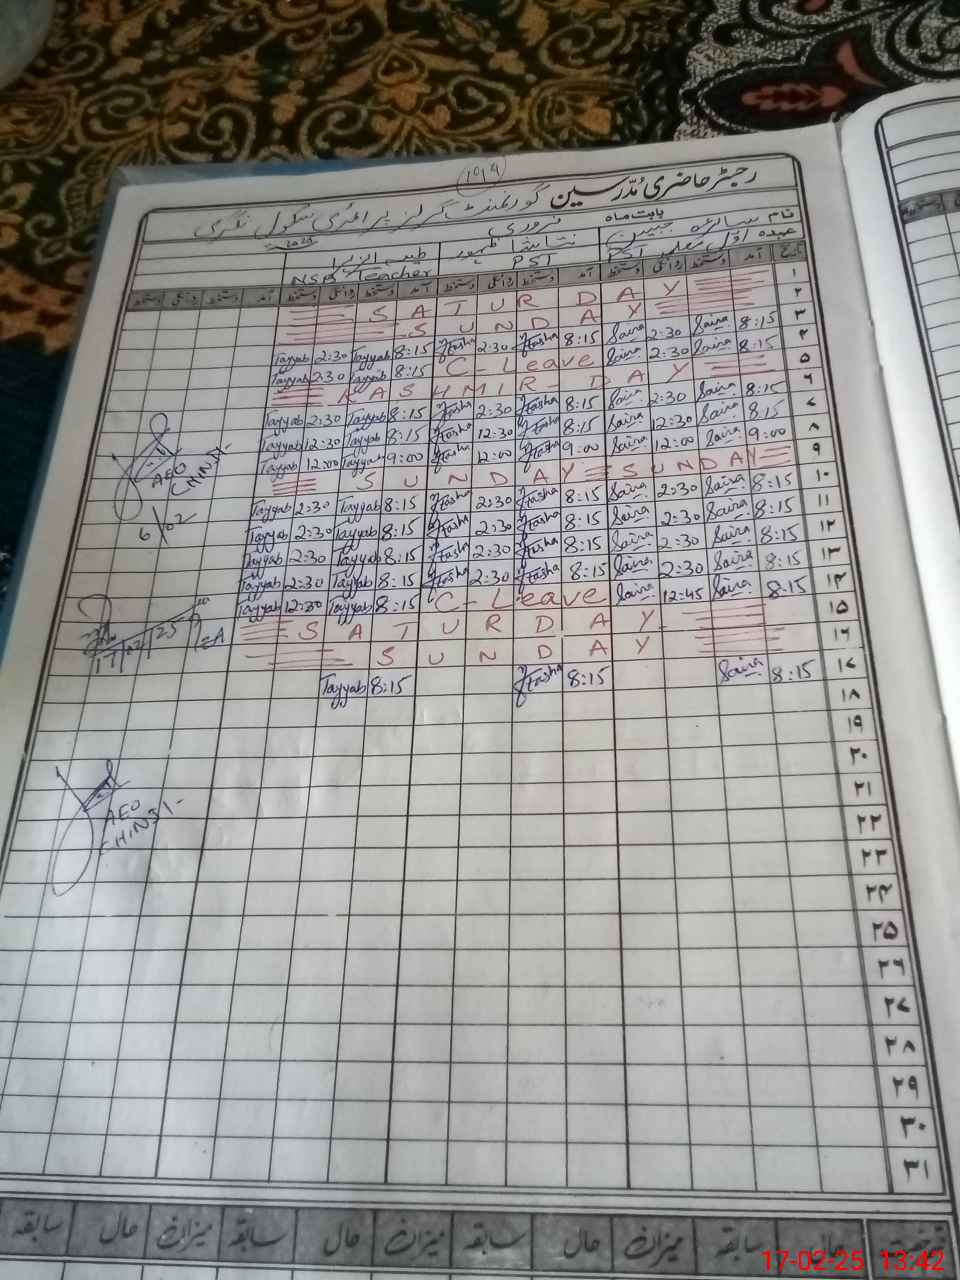 1014
رجسٹر حاضری مدّرسین گورنمنٹ گرلز پرائمری سکول نگری
نام سائرہ جبین بابت ماہ فروری 2025
عہدہ اوّل معلمہ PST
نتاشا ظہور PST
طیب الزہرا NSB Teacher
تاریخ آمد دستخط روانگی دستخط آمد دستخط روانگی دستخط آمد دستخط روانگی دستخط آمد دستخط روانگی دستخط
۱ SATURDAY
۲ SUNDAY
۳ 8:15 Saira 2:30 Saira 8:15 2:30 8:15 Tayyab 2:30 Tayyab
۴ 8:15 Saira 2:30 Saira C-Leave 8:15 Tayyab 2:30 Tayyab
۵ KASHMIR-DAY
۶ 8:15 Saira 2:30 Saira 8:15 2:30 8:15 Tayyab 2:30 Tayyab
۷ 8:15 Saira 12:30 Saira 8:15 12:30 8:15 Tayyab 12:30 Tayyab
۸ 9:00 Saira 12:00 Saira 9:00 12:00 9:00 Tayyab 12:00 Tayyab
۹ SUNDAY SUNDAY
۱۰ 8:15 Saira 2:30 Saira 8:15 2:30 8:15 Tayyab 2:30 Tayyab
۱۱ 8:15 Saira 2:30 Saira 8:15 2:30 8:15 Tayyab 2:30 Tayyab
۱۲ 8:15 Saira 2:30 Saira 8:15 2:30 8:15 Tayyab 2:30 Tayyab
۱۳ 8:15 Saira 2:30 Saira 8:15 2:30 8:15 Tayyab 2:30 Tayyab
۱۴ 8:15 Saira 12:45 Saira C-Leave 8:15 Tayyab 12:30 Tayyab
۱۵ SATURDAY
۱۶ SUNDAY
۱۷ 8:15 Saira 8:15 8:15 Tayyab
۱۸
۱۹
۲۰
۲۱
۲۲
۲۳
۲۴
۲۵
۲۶
۲۷
۲۸
۲۹
۳۰
۳۱
AEO
CHINJI
6/02
17/02/25
AEO
CHINJI
حال سابقہ میزان حال سابقہ میزان حال سابقہ میزان حال سابقہ
17-02-25 13:42